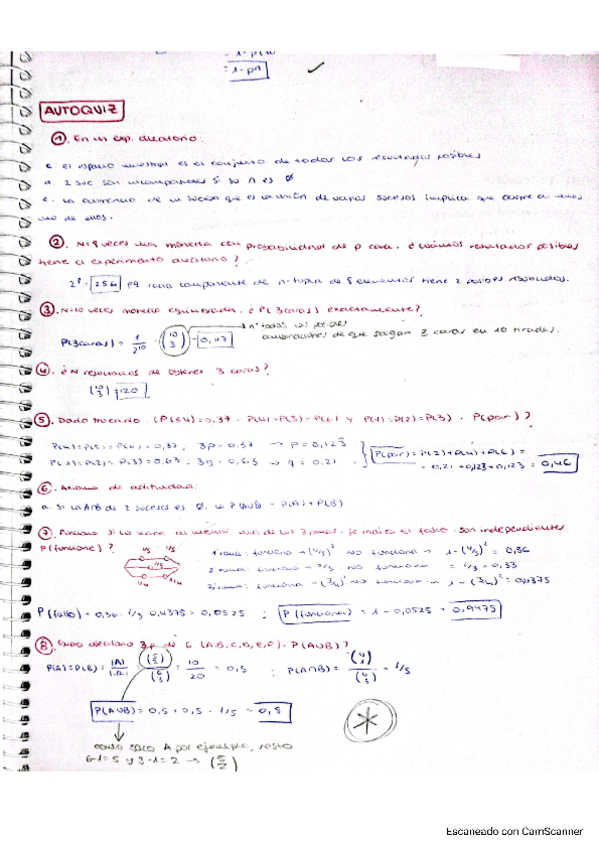 = 1 - pⁿ
AUTOQUIZ
1. En un exp. aleatorio:
c. el espacio muestral es el conjunto de todos los resultados posibles
a. 2 suc son incompatibles si su ∩ es ∅
uno de ellos.
2. N=8 veces una moneda con probabilidad de p cara. ¿Cuántos resultados posibles
tiene el experimento aleatorio?
2⁸ = 256 pq cada componente de n-tupla de 8 elementos tiene 2 posibles resultados.
3. N=10 veces moneda equilibrada. ¿P(3 caras) exactamente?
P(3 caras) = 1/2¹⁰ · (10 3) = 0,117
combinaciones de que salgan 3 caras en 10 tiradas.
4. ¿N resultados de obtener 3 caras?
(10 3) = 120
5. Dado trucado. P(4)=P(5)=P(6) y P(1)=P(2)=P(3). P(par)?
P(4)=P(5)=P(6)=0,37; 3p=0,37 → p=0,123
P(1)=P(2)=P(3)=0,63; 3q=0,63 → q=0,21
P(par)=P(2)+P(4)+P(6)=
= 0,21+0,123+0,123 = 0,46
6. Axioma de aditividad:
a. Si la A∩B de 2 sucesos es ∅, la P(A∪B) = P(A)+P(B)
7. Funciona si lo hace al menos una de las 3 ramas. Se indica el fallo. Son independientes
P(funcione)?
1 rama: funciona → (4/5)² no funciona → 1-(4/5)² = 0,36
2 rama: funciona → 2/3 no funciona = 1/3 = 0,33
3 rama: funciona → (3/4)² no funciona → 1-(3/4)² = 0,4375
P(fallo) = 0,36 · 1/3 · 0,4375 = 0,0525 ; P(funcione) = 1 - 0,0525 = 0,9475
8. 3 de 6 (A,B,C,D,E,F). P(A∪B)?
P(A)=P(B)= |A|/|Ω| = (5 2)/(6 3) = 10/20 = 0,5 ; P(A∩B) = (4 1)/(6 3) = 1/5
P(A∪B) = 0,5 + 0,5 - 1/5 = 0,8
como saco A por ejemplo, resto
6-1=5 y 3-1=2 → (5 2)
Escaneado con CamScanner